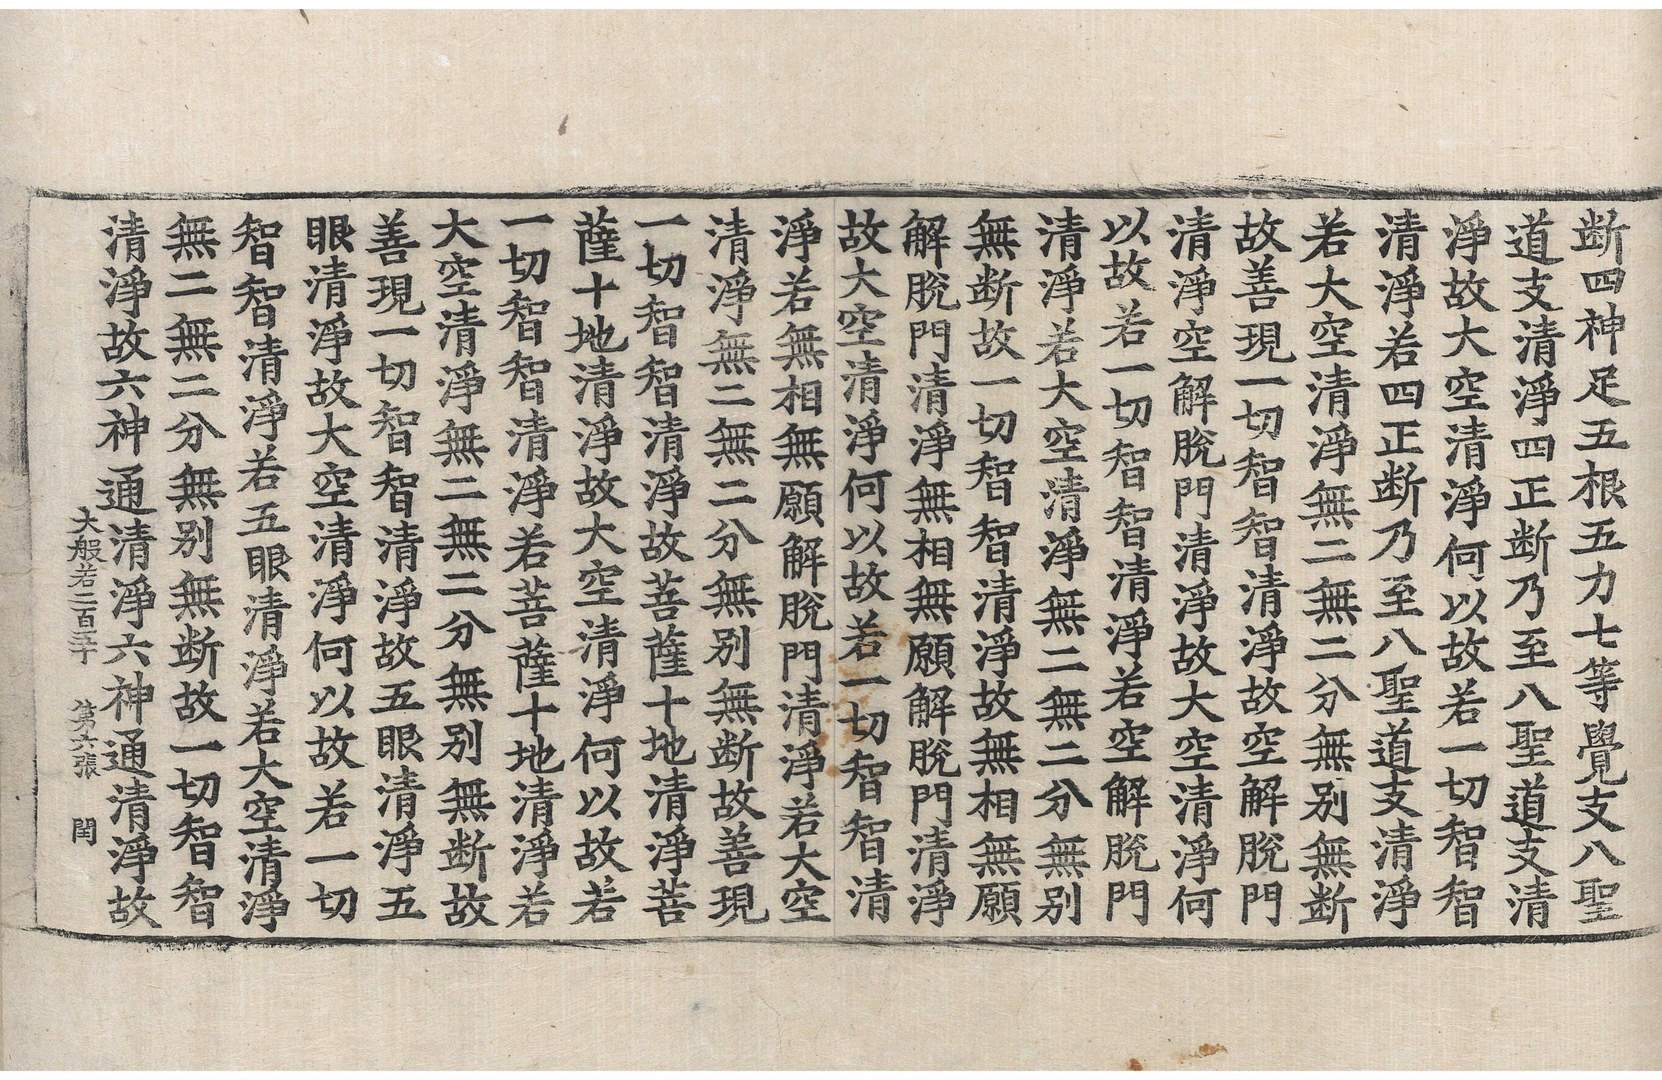 断四神足五根五力七等覺支八聖
道支清淨四正断乃至八聖道支清
淨故大空清淨何以故若一切智智
清淨若四正断乃至八聖道支清淨
若大空清淨無二無二分無别無断
故善現一切智智清淨故空解脫門
清淨空解脫門清淨故大空清淨何
以故若一切智智清淨若空解脫門
清淨若大空清淨無二無二分無别
無断故一切智智清淨故無相無願
解脫門清淨無相無願解脫門清淨
故大空清淨何以故若一切智智清
淨若無相無願解脫門清淨若大空
清淨無二無二分無别無断故善現
一切智智清淨故菩薩十地清淨菩
薩十地清淨故大空清淨何以故若
一切智智清淨若菩薩十地清淨若
大空清淨無二無二分無别無断故
善現一切智智清淨故五眼清淨五
眼清淨故大空清淨何以故若一切
智智清淨若五眼清淨若大空清淨
無二無二分無别無断故一切智智
清淨故六神通清淨六神通清淨故
大般若二百 第六張 閏